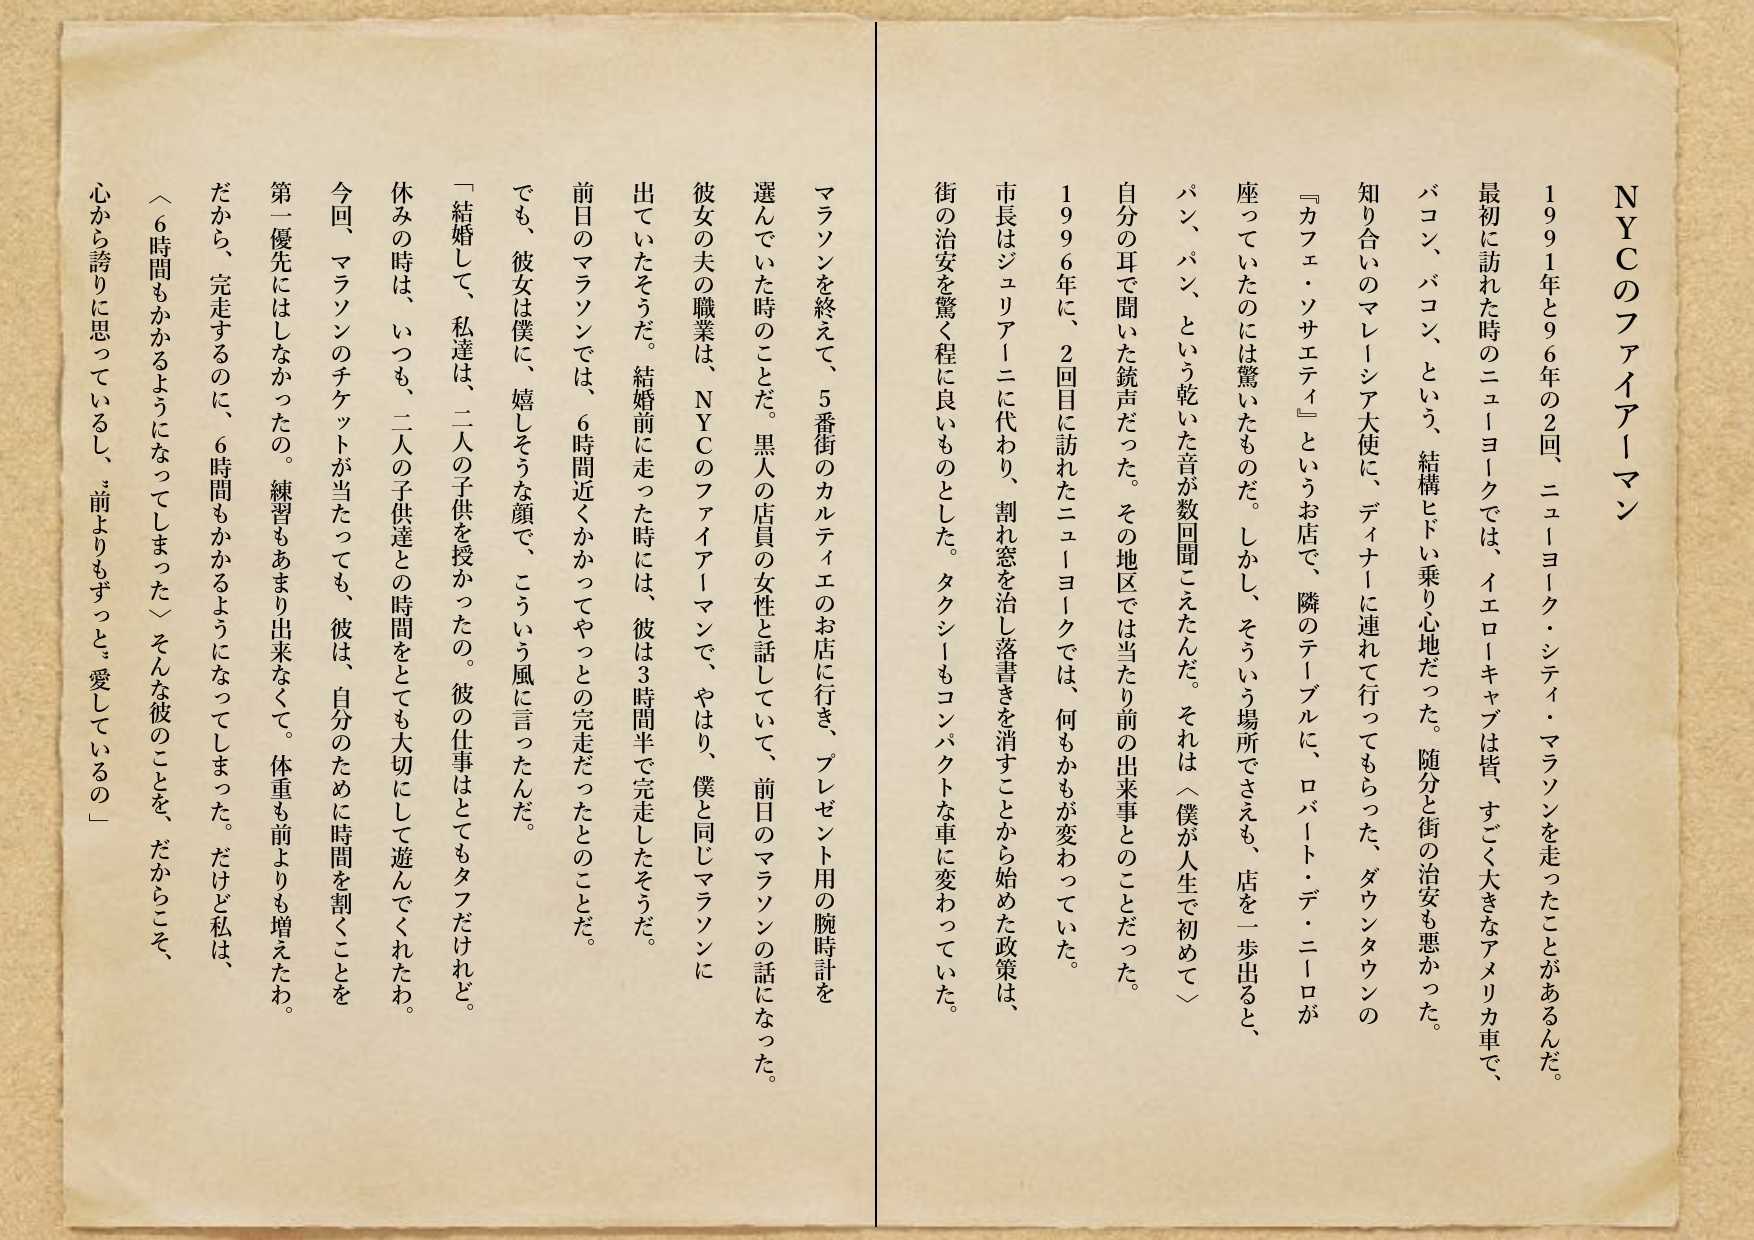 NYCのファイアーマン
1991年と96年の2回、ニューヨーク・シティ・マラソンを走ったことがあるんだ。
最初に訪れた時のニューヨークでは、イエローキャブは皆、すごく大きなアメリカ車で、
バコン、バコン、という、結構ヒドい乗り心地だった。随分と街の治安も悪かった。
知り合いのマレーシア大使に、ディナーに連れて行ってもらった、ダウンタウンの
『カフェ・ソサエティ』というお店で、隣のテーブルに、ロバート・デ・ニーロが
座っていたのには驚いたものだ。しかし、そういう場所でさえも、店を一歩出ると、
パン、パン、という乾いた音が数回聞こえたんだ。それは〈僕が人生で初めて〉
自分の耳で聞いた銃声だった。その地区では当たり前の出来事とのことだった。
1996年に、2回目に訪れたニューヨークでは、何もかもが変わっていた。
市長はジュリアーニに代わり、割れ窓を治し落書きを消すことから始めた政策は、
街の治安を驚く程に良いものとした。タクシーもコンパクトな車に変わっていた。
マラソンを終えて、5番街のカルティエのお店に行き、プレゼント用の腕時計を
選んでいた時のことだ。黒人の店員の女性と話していて、前日のマラソンの話になった。
彼女の夫の職業は、NYCのファイアーマンで、やはり、僕と同じマラソンに
出ていたそうだ。結婚前に走った時には、彼は3時間半で完走したそうだ。
前日のマラソンでは、6時間近くかかってやっとの完走だったとのことだ。
でも、彼女は僕に、嬉しそうな顔で、こういう風に言ったんだ。
「結婚して、私達は、二人の子供を授かったの。彼の仕事はとてもタフだけれど。
休みの時は、いつも、二人の子供達との時間をとても大切にして遊んでくれたわ。
今回、マラソンのチケットが当たっても、彼は、自分のために時間を割くことを
第一優先にはしなかったの。練習もあまり出来なくて。体重も前よりも増えたわ。
だから、完走するのに、6時間もかかるようになってしまった。だけど私は、
〈6時間もかかるようになってしまった〉そんな彼のことを、だからこそ、
心から誇りに思っているし、〝前よりもずっと〟愛しているの」